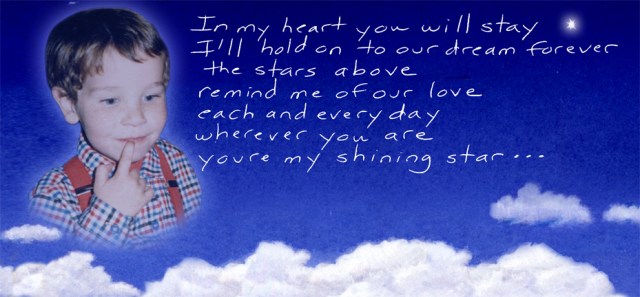 In my heart you will stay
I'll hold on to our dream forever
the stars above
remind me of our love
each and every day
wherever you are
youre my shining star...